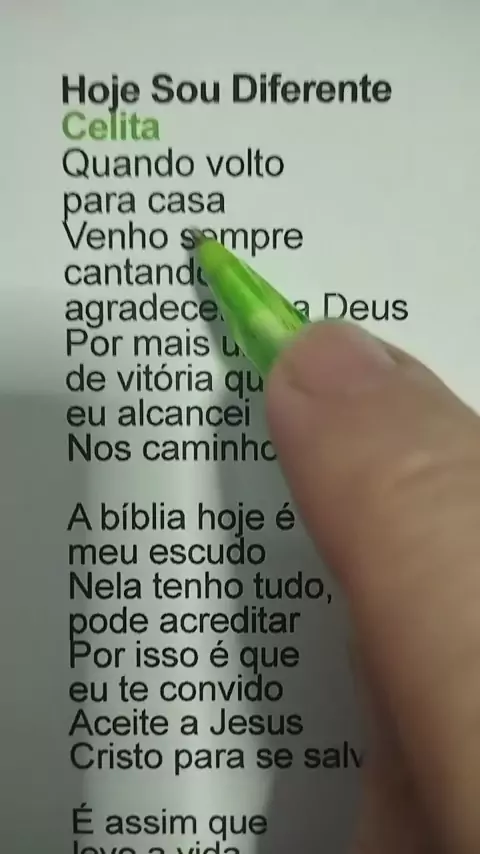 Hoje Sou Diferente
Celita
Quando volto
para casa
Venho sempre
cantando
a Deus
Por mais
de vitória
eu alcancei
Nos
A bíblia hoje é
meu escudo
Nela tenho tudo,
pode acreditar
Por isso é que
eu te convido
Aceite a Jesus
Cristo para se
É assim que
levo a vida